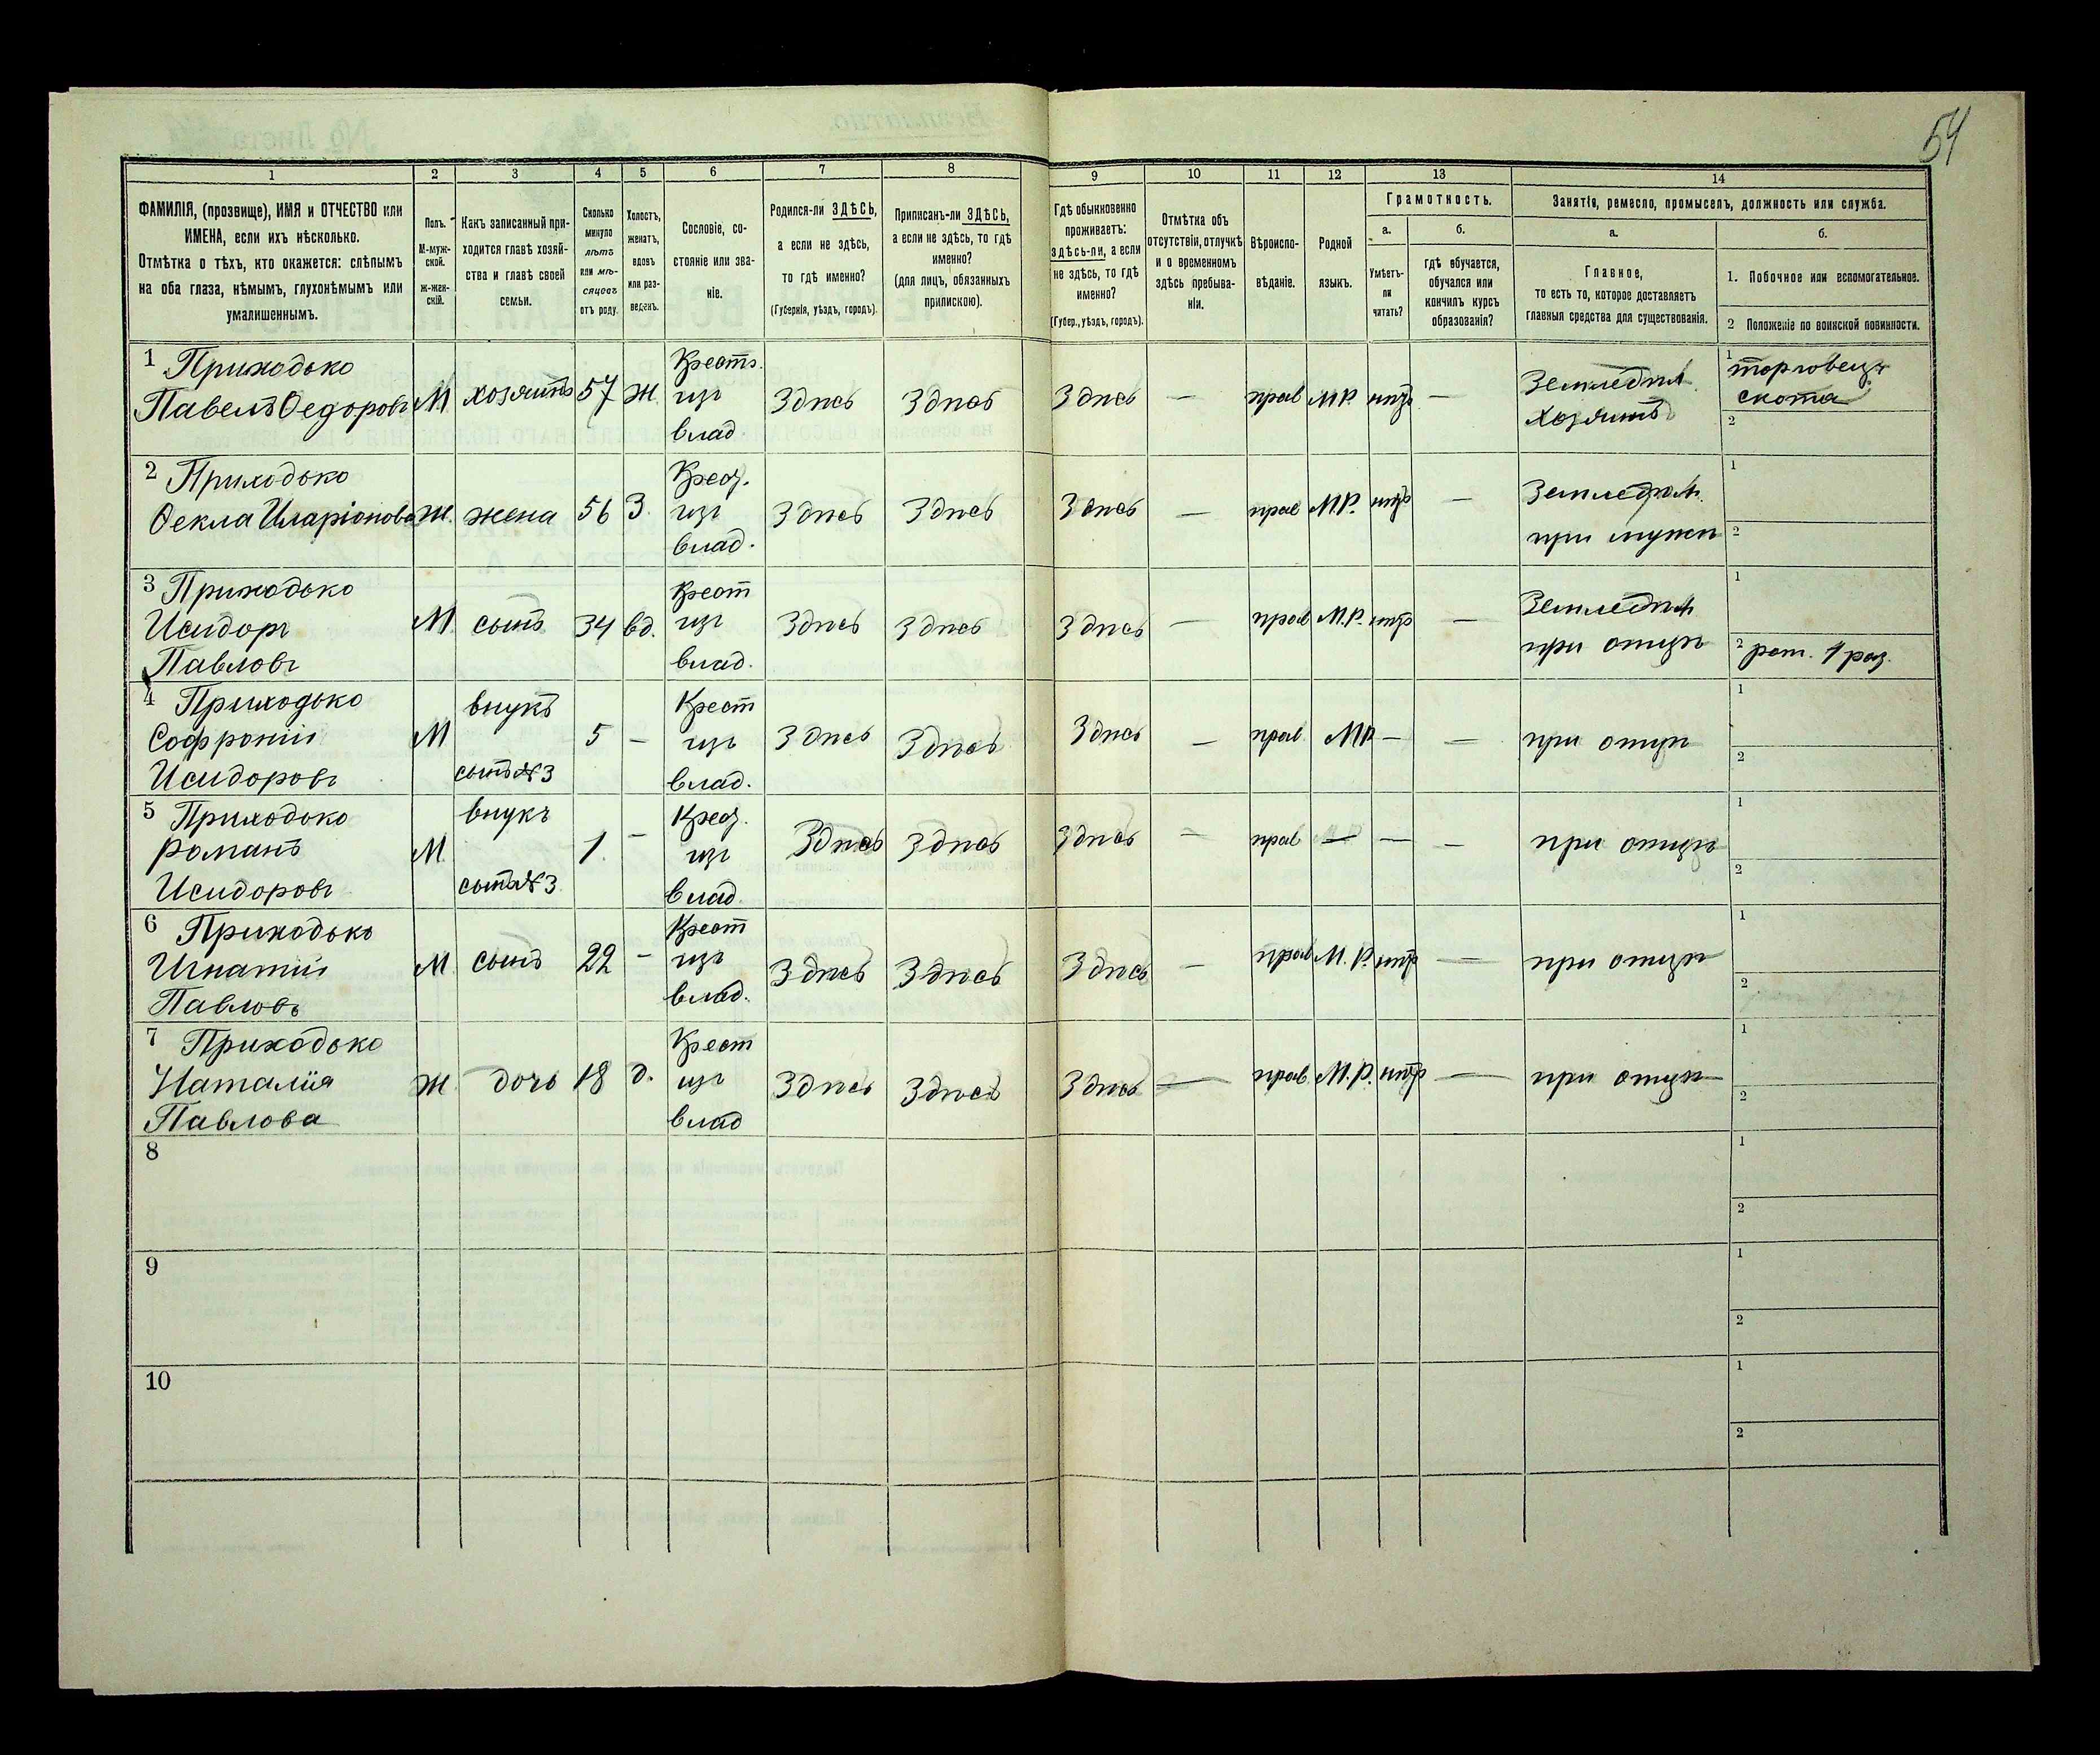 54
1
2
3
4
5
6
7
8
9
10
11
12
13
14
ФАМИЛІЯ, (прозвище), ИМЯ и ОТЧЕСТВО или
ИМЕНА, если ихъ нѣсколько.
Отмѣтка о тѣхъ, кто окажется: слѣпымъ
на оба глаза, нѣмымъ, глухонѣмымъ или
умалишеннымъ.
Полъ.
М-муж-
ской.
ж-жен-
скій.
Какъ записанный при-
ходится главѣ хозяй-
ства и главѣ своей
семьи.
Сколько
минуло
лѣтъ
или мѣ-
сяцевъ
отъ роду.
Холостъ,
женатъ,
вдовъ
или раз-
веденъ.
Сословіе, со-
стояніе или зва-
ніе.
Родился-ли ЗДѢСЬ,
а если не здѣсь,
то гдѣ именно?
(Губернія, уѣздъ, городъ).
Приписанъ-ли ЗДѢСЬ,
а если не здѣсь, то гдѣ
именно?
(для лицъ, обязанныхъ
припискою).
Гдѣ обыкновенно
проживаетъ:
здѣсь-ли, а если
не здѣсь, то гдѣ
именно?
(Губер., уѣздъ, городъ).
Отмѣтка объ
отсутствіи, отлучкѣ
и о временномъ
здѣсь пребыва-
ніи.
Вѣроиспо-
вѣданіе.
Родной
языкъ.
Грамотность.
а.
Умѣетъ-
ли
читать?
б.
гдѣ обучается,
обучался или
кончилъ курсъ
образованія?
Занятіе, ремесло, промыселъ, должность или служба.
а.
Главное,
то есть то, которое доставляетъ
главныя средства для существованія.
б.
1. Побочное или вспомогательное.
2 Положеніе по воинской повинности.
1 Приходько
Павелъ Ѳедоровъ
М
хозяинъ
57
Ж
Крестъ.
изъ
влад.
Здѣсь
Здѣсь
Здѣсь
—
прав
М.Р.
нѣтъ
—
Земледѣл.
хозяинъ
1 торговецъ
скота
2
2 Приходько
Ѳекла Иларіонова
Ж.
жена
56
З.
изъ
влад.
Здѣсь
Здѣсь
Здѣсь
—
прав
М.Р.
нѣтъ
—
Земледѣл.
при мужѣ
1
2
3 Приходько
Исидоръ
Павловъ
М.
сынъ
34
вд.
Крест
изъ
влад.
Здѣсь
Здѣсь
Здѣсь
—
прав
М.Р.
нѣтъ
—
Земледѣл
при отцѣ
1
2 рат. 1 раз.
4 Приходько
Софроній
Исидоровъ
М
внукъ
сынъ №3
5
—
Крест
изъ
влад.
Здѣсь
Здѣсь
Здѣсь
—
прав.
МР
—
—
при отцѣ
1
2
5 Приходько
Романъ
Исидоровъ
М.
внукъ
сынъ №3
1.
—
изъ
влад.
Здѣсь
Здѣсь
Здѣсь
—
прав
—
—
—
при отцѣ
1
2
6 Приходько
Игнатій
Павловъ
М
сынъ
22
—
Крест
изъ
влад.
Здѣсь
Здѣсь
Здѣсь
—
прав
М.Р.
нѣтъ
—
при отцѣ
1
2
7 Приходько
Наталія
Павлова
Ж.
дочь
18
д.
Крест
изъ
влад
Здѣсь
Здѣсь
Здѣсь
—
прав.
М.Р.
нѣтъ
—
при отцѣ
1
2
8
1
2
9
1
2
10
1
2